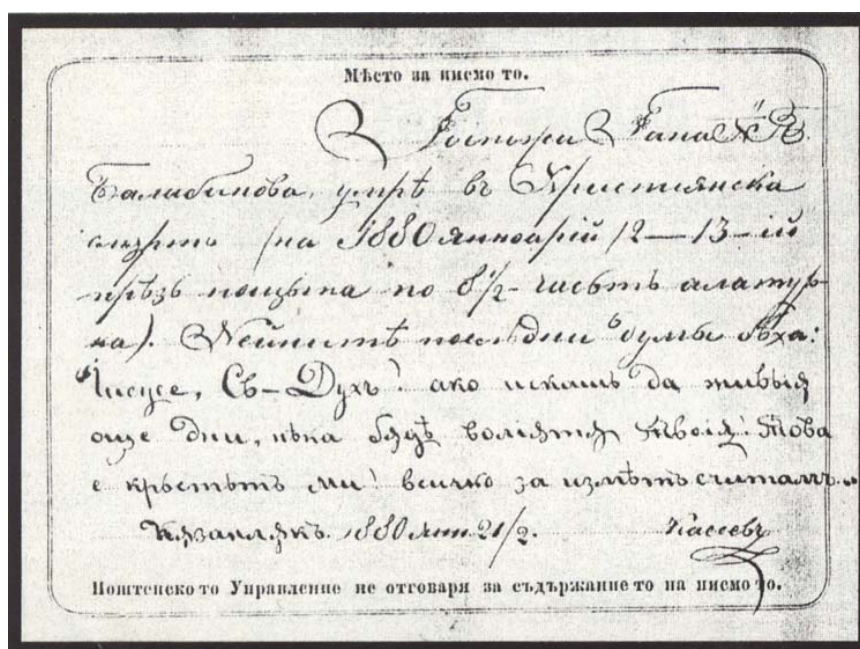 Мѣсто за писмо то.
Госпожа Гана Х" В.
Балабанова, умрѣ въ Християнска
смърть (на 1880 януарій 12–13-ій
прѣзъ нощьта по 8 1/2 - часътъ алатур-
ка). Нейнитѣ послѣдни думы бѣха:
"Иисусе, Св–Духъ! ако искашь да живѣя
още дни, нѣка бѫдѣ волята твоя! Това
е кръстътъ ми! всичко за измѣтъ считамъ..
Казанлѫкъ. 1880 янн 21/2.
Поштенско то Управление не отговаря за съдържание то на писмо то.